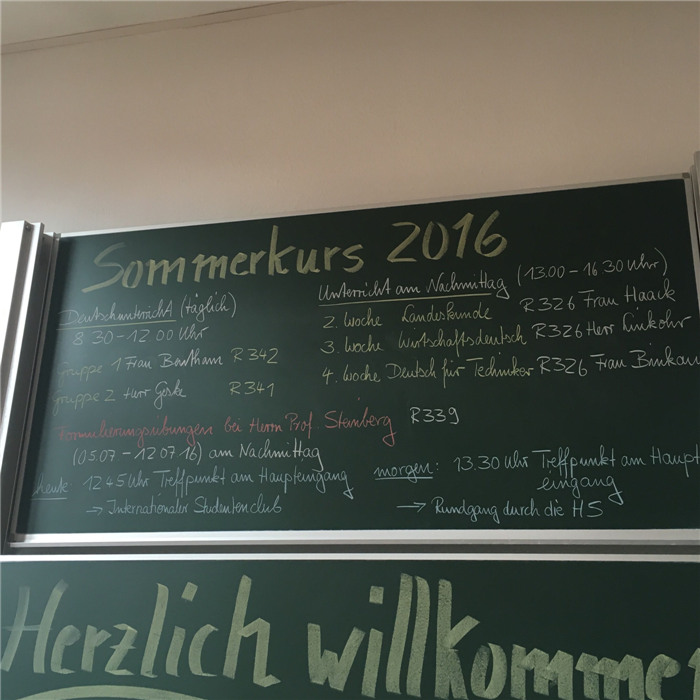 Sommerkurs 2016
Deutschunterricht (täglich)
8 30 - 12 00 Uhr
Gruppe 1 Frau Bontham R 342
Gruppe 2 Herr Geske R 341
Unterricht am Nachmittag (13.00 - 16 30 Uhr)
2. Woche Landeskunde R326 Frau Haack
3. Woche Wirtschaftsdeutsch R326 Herr Linkohr
4. Woche Deutsch für Techniker R326 Frau
Formulierungsübungen bei Herrn Prof. Steinberg R339
(05.07 - 12.07 16) am Nachmittag
heute: 12 45 Uhr Treffpunkt am Haupteingang
→ Internationaler Studentenclub
morgen: 13.30 Uhr Treffpunkt am Haupt
eingang
→ Rundgang durch die HS
Herzlich willkomme